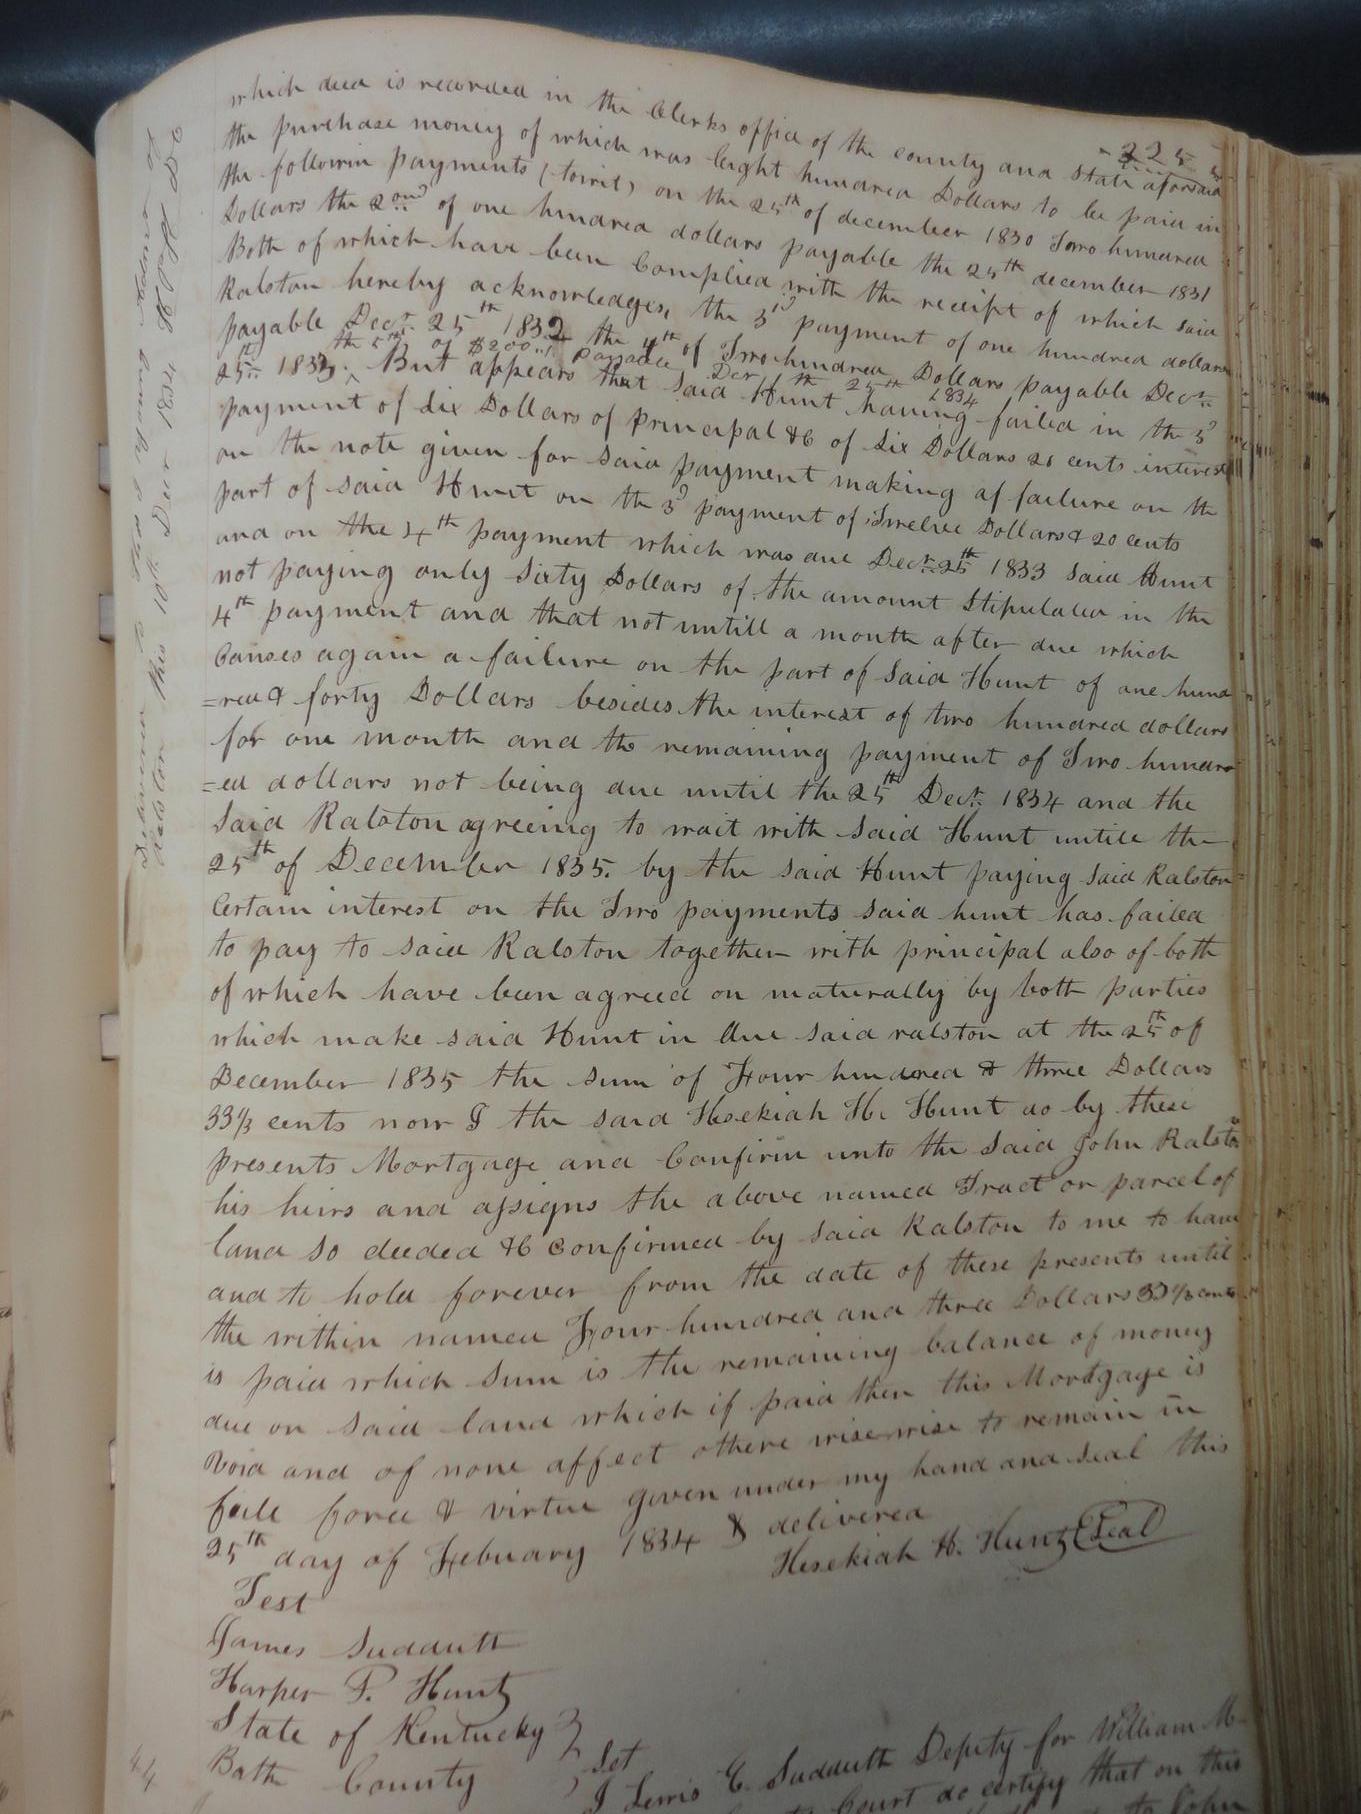 225
which deed is recorded in the Clerks office of the county and State aforesaid
the purchase money of which was Eeight hundred Dollars to be paid in
the followin payments (towit) on the 25th of december 1830 Two hundred
Dollars the 2ond of one hundred dollars payable the 25th december 1831
Both of which have been Complied with the receipt of which said
Ralston hereby acknowledges, the 3d payment of one hundred dollars
payable Decr. 25th 1832 the 4th of Two hundred Dollars payable Decr.
the 5th of $200.. payable Decr 25th 1834
25th 1833. But appears that said Hunt having failed in the 3d
payment of Six Dollars of principal &c of Six Dollars 20 cents interest
on the note given for said payment making af failure on the
part of said Hunt on the 3d payment of Twelve Dollars & 20 cents
and on the 4th payment which was due Decr. 25th 1833 said Hunt
not paying only Sixty Dollars of the amount Stipulated in the
4th payment and that not untill a month after due which
Causes again a failure on the part of Said Hunt of one hund
=red & forty Dollars besides the interest of two hundred dollars
for one month and the remaining payment of Two hundr
=ed dollars not being due until the 25th Decr. 1834 and the
Said Ralston agreeing to wait with Said Hunt untill the
25th of December 1835. by the said Hunt paying said Ralston
Certain interest on the Two payments said hunt has failed
to pay to said Ralston together with principal also of both
of which have been agreed on maturally by both parties
which make said Hunt in due said ralston at the 25th of
December 1835 the sum of Four hundred & three Dollars
33⅓ cents now I the said Hesekiah H. Hunt do by these
presents Mortgage and Confirm unto the Said John Ralston
his heirs and assigns the above named Tract or parcel of
land so deeded &c confirmed by said Ralston to me to have
and to hold forever from the date of these presents until
the within named Four hundred and three Dollars 33⅓ cents
is paid which Sum is the remaining balance of money
due on said land which if paid then this Mortgage is
Void and of none affect othere wisewise to remain in
full force & virtue given under my hand and Seal this
25th day of Febuary 1834 & delivered
Hesekiah H. Hunt Seal
Test
James Sudduth
Harper P. Hunt
State of Kentucky
Bath County Sct
I Lewis E. Sudduth Deputy for William M
Court do certify that on this
to John
Ralston this 10th Decr 1834